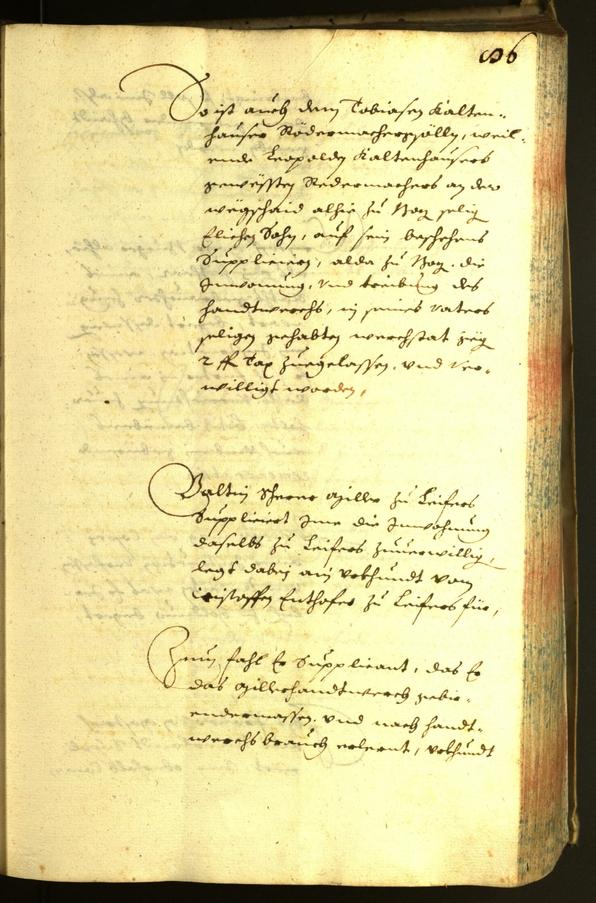 So ist auch dem Tobiasen Kalten-
hauser Rödermachergsölln, weil-
endt Leopolden Kaltenhausers
gewessten Redermachers an der
wegschaid alhie zu Bozen selig
Elichen Sohn, auf sein beschehens
Supplicieren, alda zu Bozen die
Inwonung, vnd treibung des
handtwerchs, in seines Vaters
seligen gehabten werchstat gegen
2 ff Tax zuegelassen, vnd ver-
willigt worden,
Valtin Scherer Miller zu Leifers
Suppliciert Ime die Inwohnung
daselbs zu Leifers zuuerwilligen,
legt dabei ain vrkhundt vom
Cristoffen Enthofer zu Leifers für,
Zum fahl Er Supplicant, das Er
das Millerhandtwerch gebür-
endermassen, vnd nach handt-
werchsbrauch erlernt, vrkhundt